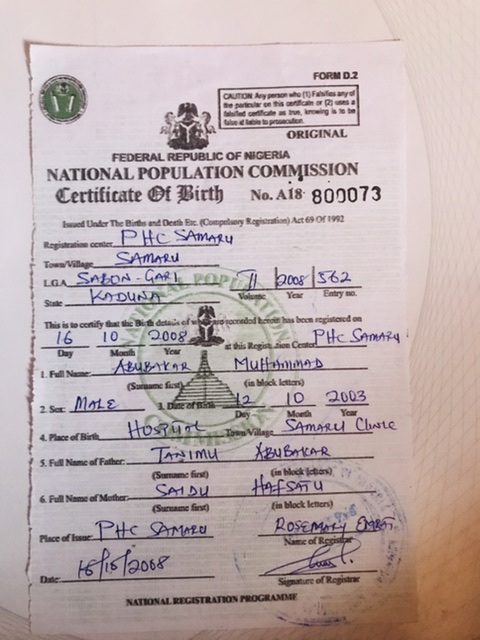 FORM D.2
CAUTION: Any person who (1) Falsifies any of
the particular on this certificate or (2) uses a
falsified certificate as true, knowing is to be
false is liable to prosecution.
ORIGINAL
FEDERAL REPUBLIC OF NIGERIA
NATIONAL POPULATION COMMISSION
Certificate Of Birth No. A18 800073
Issued Under The Births and Death Etc. (Compulsory Registration) Act 69 Of 1992
Registration center PHC SAMARU
Town/Village SAMARU
L.G.A SABON-GARI 2008 562
State KADUNA Volume Year Entry no.
This is to certify that the Birth details of which are recorded herein has been registered on
16 10 2008 at this Registration Center PHC SAMARU
Day Month Year
1. Full Name: ABUBAKAR MUHAMMAD
(Surname first) (in block letters)
2. Sex: MALE 3. Date of Birth 12 10 2003
Day Month Year
4. Place of Birth HOSPITAL Town/Village SAMARU CLINIC
5. Full Name of Father: TANIMU ABUBAKAR
(Surname first) (in block letters)
6. Full Name of Mother: SAIDU HAFSATU
(Surname first) (in block letters)
Place of Issue: PHC SAMARU ROSEMARY
Name of Registrar
Date: 16/10/2008
Signature of Registrar
NATIONAL REGISTRATION PROGRAMME
NATIONAL POPULATION
COMMISSION